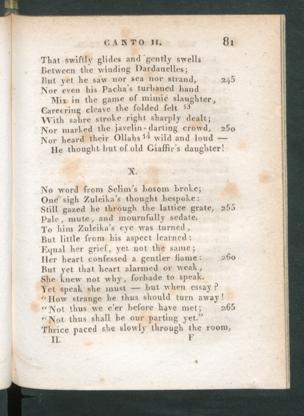 CANTO II. 81
That swiftly glides and gently swells
Between the winding Dardanelles;
But yet he saw nor sea nor strand, 245
Nor even his Pacha's turbaned hand
Mix in the game of mimic slaughter,
Careering cleave the folded felt 13
With sabre stroke right sharply dealt;
Nor marked the javelin-darting crowd, 250
Nor heard their Ollahs 14 wild and loud —
He thought but of old Giaffir's daughter!
X.
No word from Selim's bosom broke;
One sigh Zuleika's thought bespoke:
Still gazed he through the lattice grate, 255
Pale, mute, and mournfully sedate.
To him Zuleika's eye was turned,
But little from his aspect learned:
Equal her grief, yet not the same;
Her heart confessed a gentler flame: 260
But yet that heart alarmed or weak,
She knew not why, forbade to speak.
Yet speak she must — but when essay?
"How strange he thus should turn away!
"Not thus we e'er before have met; 265
"Not thus shall be our parting yet."
Thrice paced she slowly through the room,
II. F